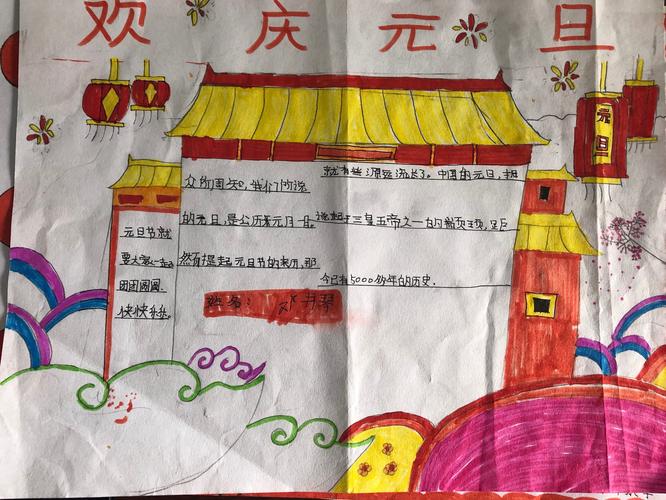 欢庆元旦
元旦
元旦节就
要大家一起
团团圆圆
快快乐乐。
众所周知,我们所说
的元旦,是公历元月一日。
然有提起元旦节的来历,那
就有些源远流长了。中国的元旦,
说起于三皇五帝之一的颛顼,距
今已有5000多年的历史.
姓名: